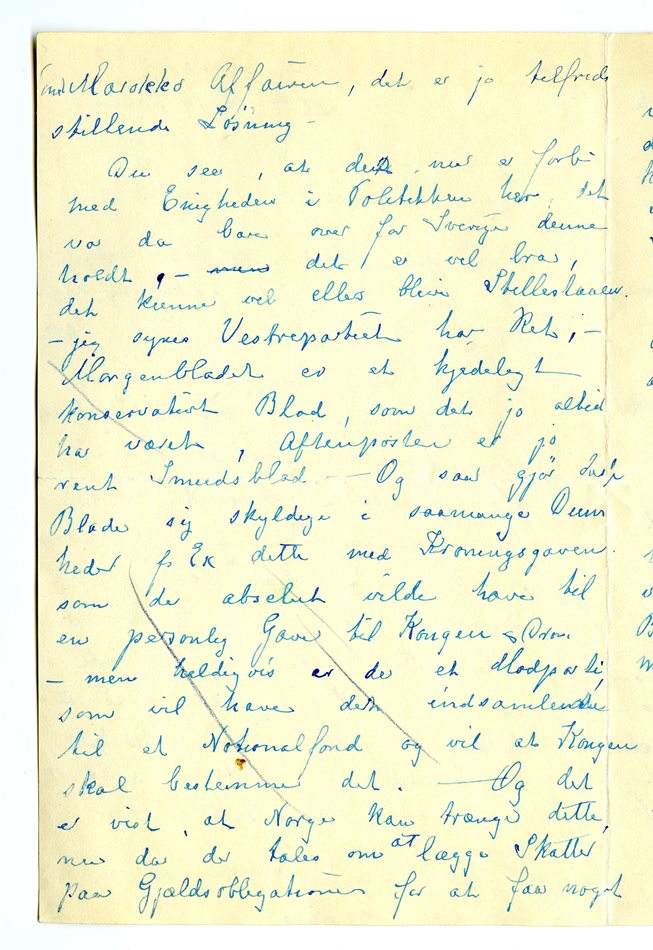 Marokko Affairen, det er jo tilfreds
stillende Løsning –
Du seer, at det nu er forbi
med Enigheden i Politikken her, det
var da bare over for Sverige denne
holdt, – men det er vel bra,
det kunne vel elles blive Stillestaaen.
– jeg synes Vestrepartiet har Ret, –
Morgenbladet er et kjedeligt
konservativt Blad, som det jo altid
har været, Aftenposten er jo
rent Smudsblad. – Og saa gjør
Blade sig skyldige i saamange Dum
heder f Ex dette med Kroningsgaven.
som de absolut vilde have til
en personlig Gave til Kongen & Dron.
– men heldigvis er de et Modparti,
som vil have det indsamlende
til et Nationalfond og vil at Kongen
skal bestemme det. – Og det
er vist, at Norge kan trænge dette,
nu da der tales om at lægge Skatter
paa Gjældsobligationer for at faa noget